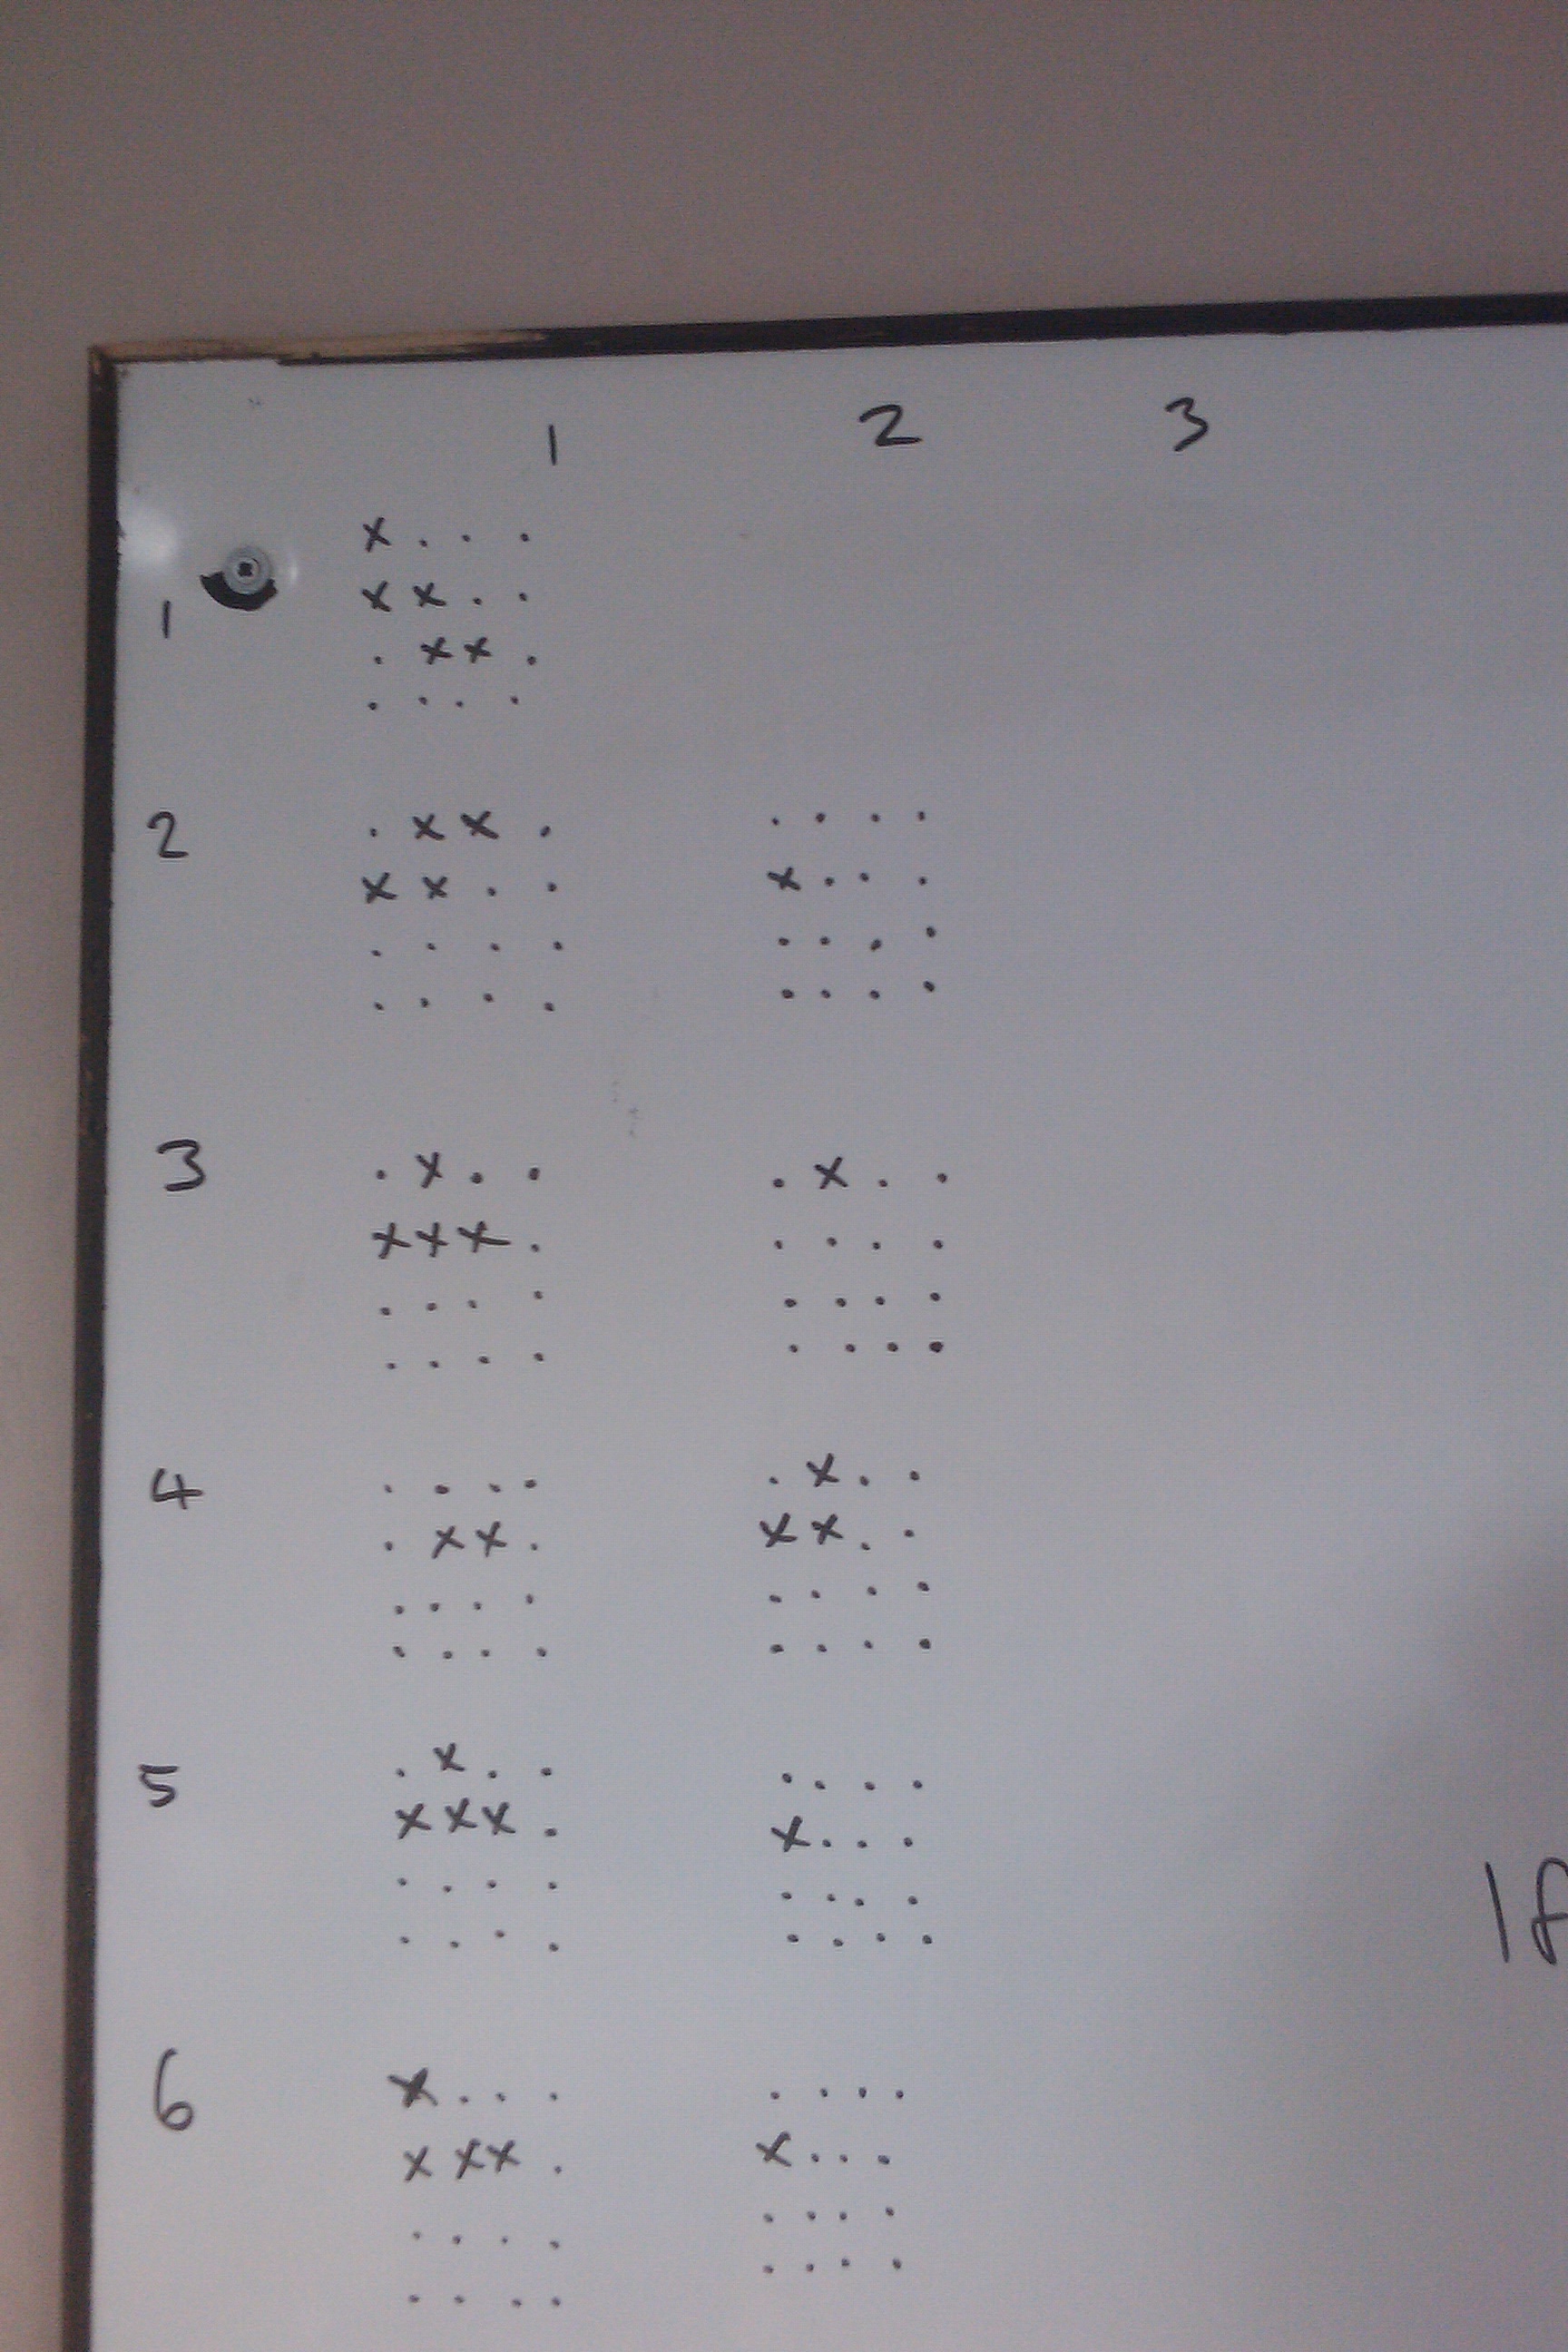 1 2 3
x . . .
1 x x . .
. x x .
. . . .
2 . x x . . . . .
x x . . x . . .
. . . . . . . .
. . . . . . . .
3 . x . . . x . .
x x x . . . . .
. . . . . . . .
. . . . . . . .
4 . . . . . x . .
. x x . x x . .
. . . . . . . .
. . . . . . . .
5 . x . . . . . .
x x x . x . . .
. . . . . . . .
. . . . . . . .
6 x . . . . . . .
x x x . x . . .
. . . . . . . .
. . . . . . . .